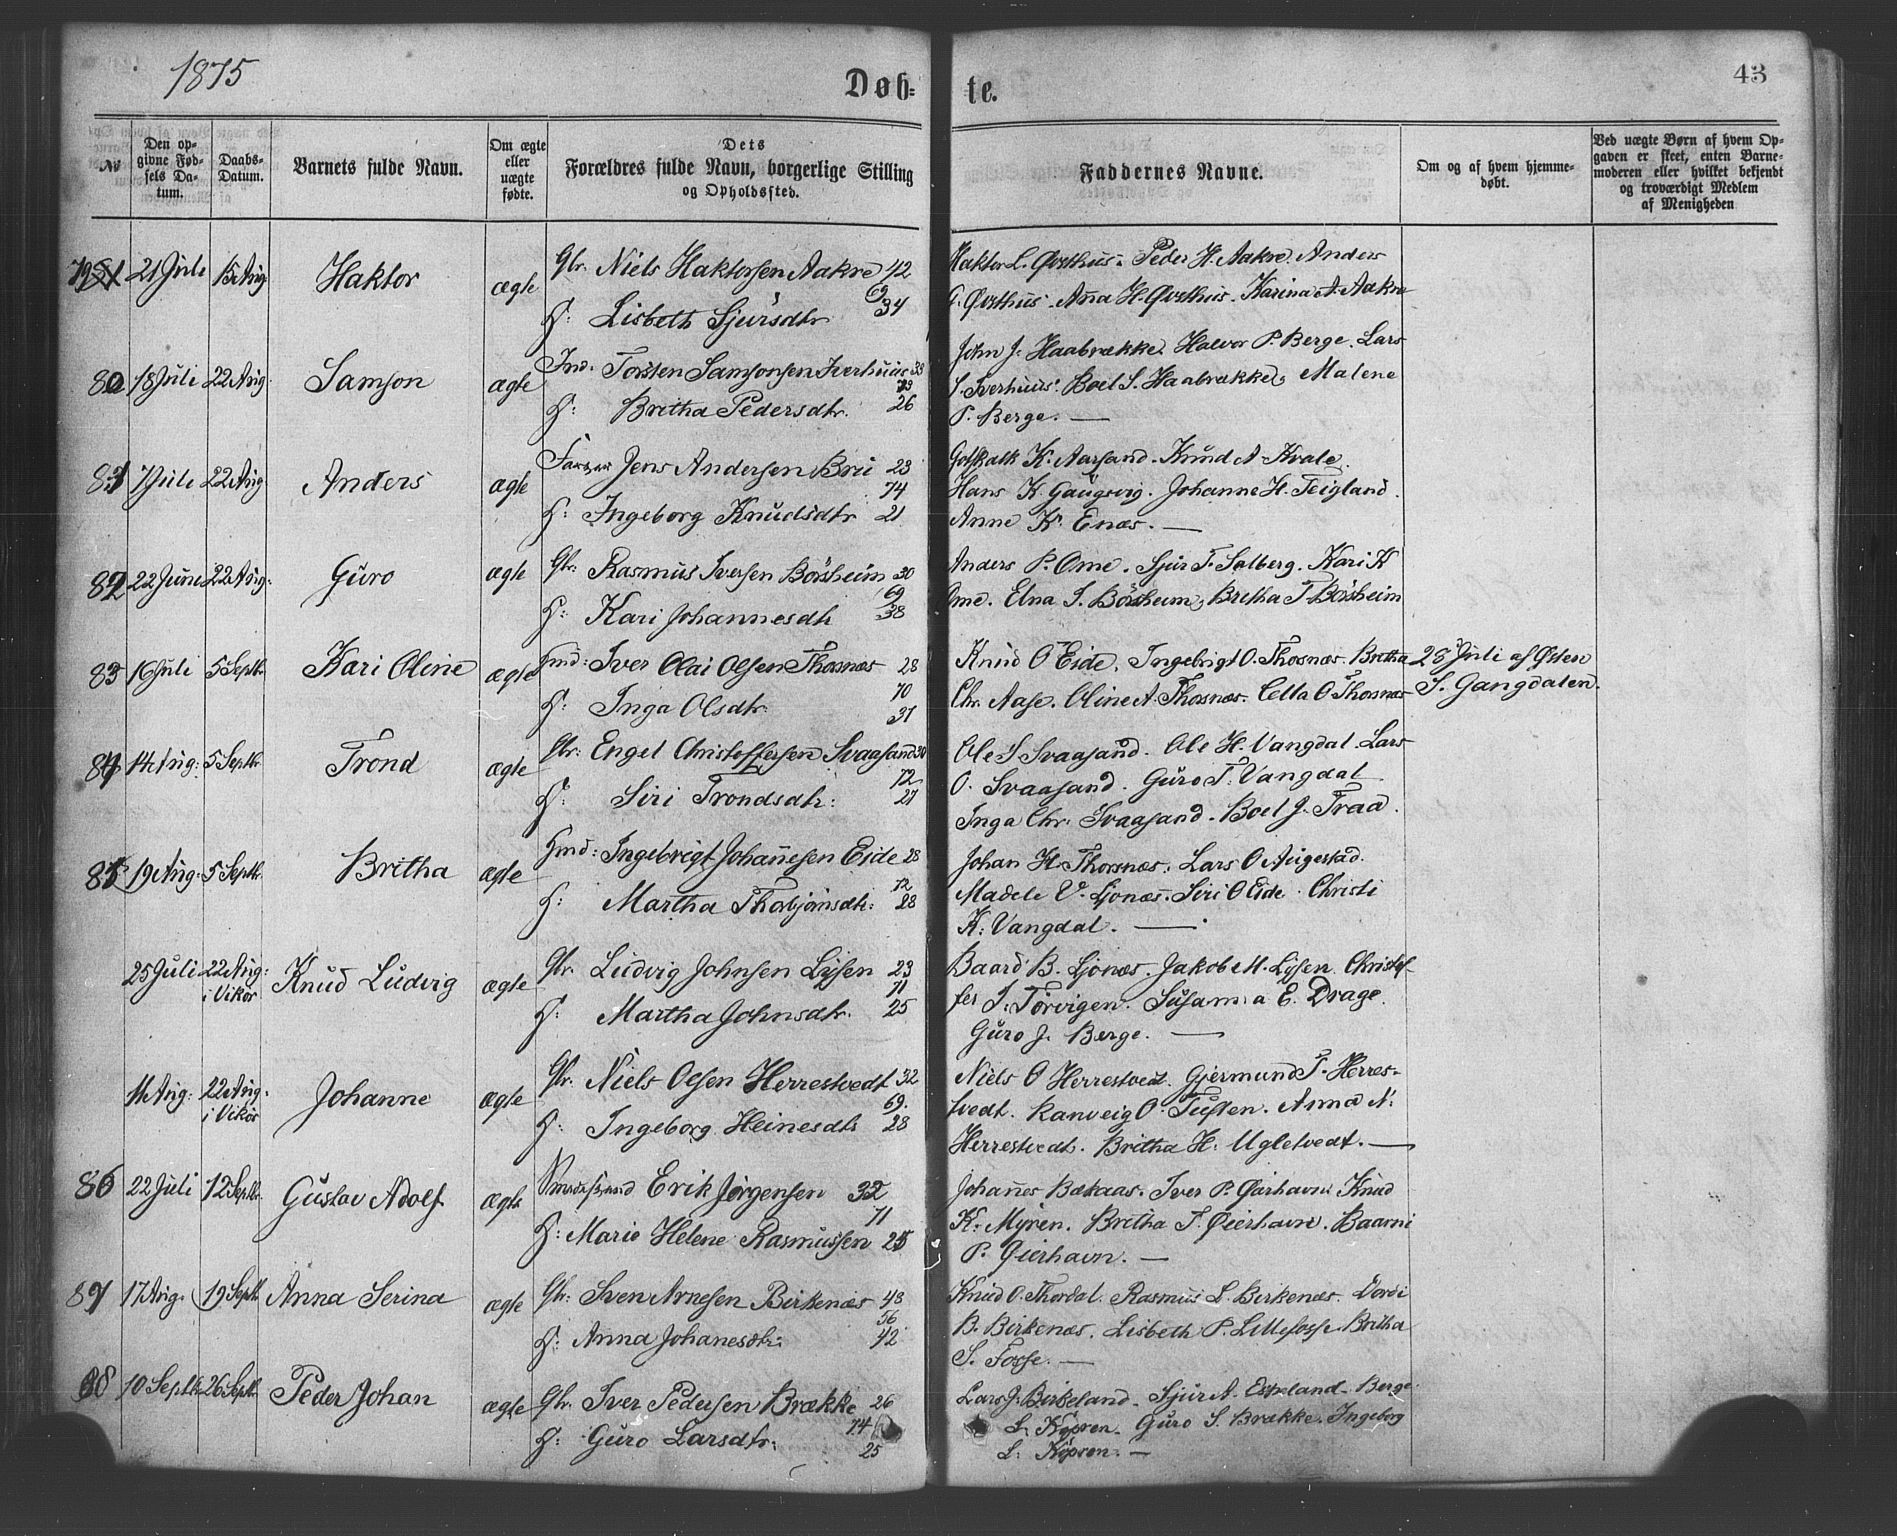 1875
Døb= te.
43
№
Den op-
givne Fød-
sels Da-
tum.
Daabs-
Datum.
Barnets fulde Navn.
Om ægte
eller
uægte
fødte.
Dets
Forældres fulde Navn, borgerlige Stilling
og Opholdssted.
Faddernes Navne.
Om og af hvem hjemme-
døbt.
Ved uægte Børn af hvem Op-
gaven er skeet, enten Barne-
moderen eller hvilket bekjendt
og troværdigt Medlem
af Menigheden
79 21 Juli 15 Aug Haktor ægte Gbr. Niels Haktorsen Aakre 42
69
H: Lisbeth Sjursdtr 34
Haktor L. Øvsthus. Peder H. Aakre. Anders
G. Øvsthus. Anna H. Øvsthus. Karina A. Aakre
80 18 Juli 22 Aug. Samson ægte Ind. Torsten Samsonsen Iverhuus 33
73
H: Britha Pedersdtr. 26
John J. Haabrække. Halvor P. Berge. Lars
S. Iverhuus. Boel S. Haabrække, Malene
P. Berge. —
81 7 Juli 22 Aug Anders ægte Jens Andersen Brii 23
74
H: Ingeborg Knudsdtr 21
Gotskalk K. Aarsand. Knud A. Kvale.
Hans K. Gaugsvig. Johanne H. Teigland.
Anne K. Enæs. —
82 22 Juni 22 Aug: Guro ægte Gbr: Rasmus Iversen Børsheim 30
69
H: Kari Johannesdtr 38
Anders P. Ome. Sjur T. Solberg. Kari K
Ome. Elna S. Børsheim, Britha T. Børsheim
83 16 Juli 5 Septb. Kari Oline ægte Hmd: Iver Olai Olsen Thorsnæs 28
70
H: Inga Olsdtr. 31
Knud O Eide. Ingebrigt O. Thorsnæs. Britha
Chr. Aase. Oline A. Thorsnæs. Cella O Thorsnæs
28 Juli af Østen
S. Gangdalen.
84 14 Aug: 5 Septbr. Trond ægte Gbr: Engel Christoffersen Svaasand 30
72
H: Siri Trondsdtr: 21
Ole S Svaasand. Ole H. Vangdal. Lars
O. Svaasand. Guro T. Vangdal
Inga Chr. Svaasand. Boel J. Traa.
85 19 Aug: 5 Septb. Britha ægte Hmd: Ingebrigt Johannesen Eide 28
72
H: Martha Thorbjørnsdtr: 28
Johan H. Thorsnæs. Lars O Augestad.
Madele V. Ljonæs. Siri O Eide. Christi
K: Vangdal. —
25 Juli 22 Aug:
i Vikør Knud Ludvig ægte Gbr. Ludvig Johnsen Lysen 23
71
H: Martha Johnsdtr. 25
Baard B. Ljonæs. Jakob M. Lysen. Christof-
fer J. Tørvigen. Susanna E. Drage.
Guro J. Berge. —
11 Aug: 22 Aug:
i Vikør Johanne ægte Gbr. Niels Olsen Herrestvedt 32
69.
H: Ingeborg Heinesdtr 28
Niels O Herrestvedt. Gjermund T. Herres-
tvedt. Ranveig O. Tuften. Anna N.
Herrestvedt. Britha H. Ugletvedt. —
86 22 Juli 12 Septb. Gustav Adolf ægte Erik Jørgensen 32
71
H: Marie Helene Rasmussen 25
Johannes Bækaas. Iver P. Øierhavn. Knud
K. Myren. Britha T. Øierhavn. Baarni
P. Øierhavn. —
87 17 Aug. 19 Septb Anna Serina ægte Gbr: Sven Arnesen Birkenæs 43
56
H: Anna Johanesdtr: 42
Knud O. Thordal. Rasmus L. Birkenæs. Vordi
B. Birkenæs. Lisbeth P. Lillefosse Britha
S. Fosse. —
88 10 Septb 26 Septb. Peder Johan ægte Gbr. Iver Pedersen Brække 26
74
H: Guro Larsdtr. 25
Lars J. Birkeland. Sjur A. Eskeland. Berge
L. Kopren. Guro S. Brække. Ingeborg
L. Kopren. —